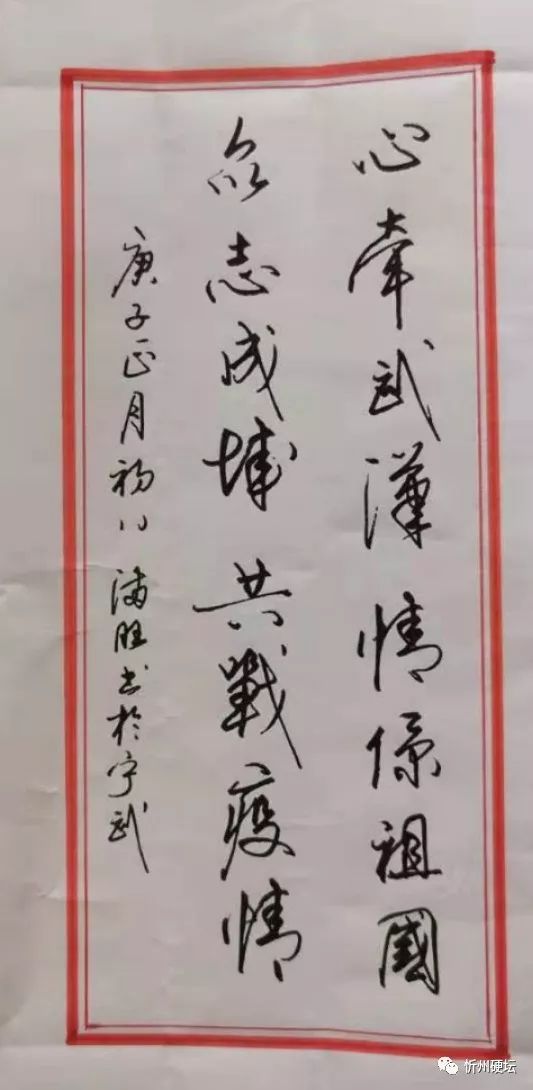 心牵武漢情係祖國
众志成城共戰疫情
庚子正月初八满旺书於宁武
忻州硬坛